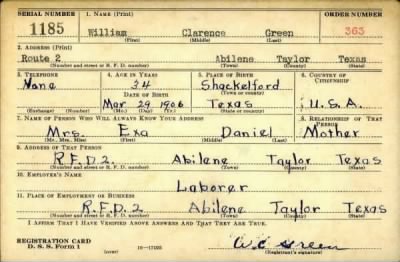 SERIAL NUMBER 1. NAME (Print) ORDER NUMBER
1185 William Clarence Green 363
(First) (Middle) (Last)
2. ADDRESS (Print)
Route 2 Abilene Taylor Texas
(Number and street or R. F. D. number) (Town) (County) (State)
3. TELEPHONE 4. AGE IN YEARS 5. PLACE OF BIRTH 6. COUNTRY OF CITIZENSHIP
None 34 Shackelford
DATE OF BIRTH (Town or county)
Mar 29 1906 Texas U.S.A.
(Exchange) (Number) (Mo.) (Day) (Yr.) (State or country)
7. NAME OF PERSON WHO WILL ALWAYS KNOW YOUR ADDRESS 8. RELATIONSHIP OF THAT PERSON
Mrs. Exa Daniel Mother
(Mr., Mrs., Miss) (First) (Middle) (Last)
9. ADDRESS OF THAT PERSON
R.F.D.2. Abilene Taylor Texas
(Number and street or R. F. D. number) (Town) (County) (State)
10. EMPLOYER'S NAME
Laborer
11. PLACE OF EMPLOYMENT OR BUSINESS
R.F.D.2 Abilene Taylor Texas
(Number and street or R. F. D. number) (Town) (County) (State)
I AFFIRM THAT I HAVE VERIFIED ABOVE ANSWERS AND THAT THEY ARE TRUE.
REGISTRATION CARD
D. S. S. Form 1 (over) W C Green
(Registrant's signature)